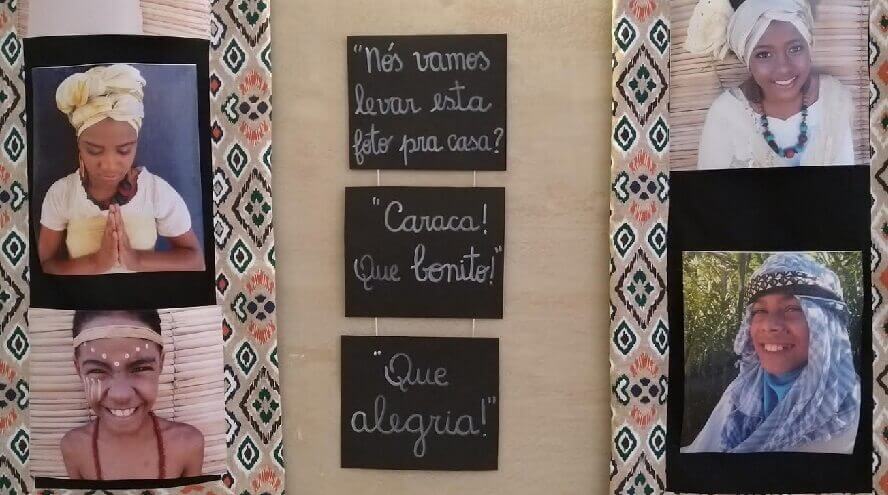 "Nós vamos
levar esta
foto pra casa?
"Caraca!
Que bonito!"
"Que
alegria!"